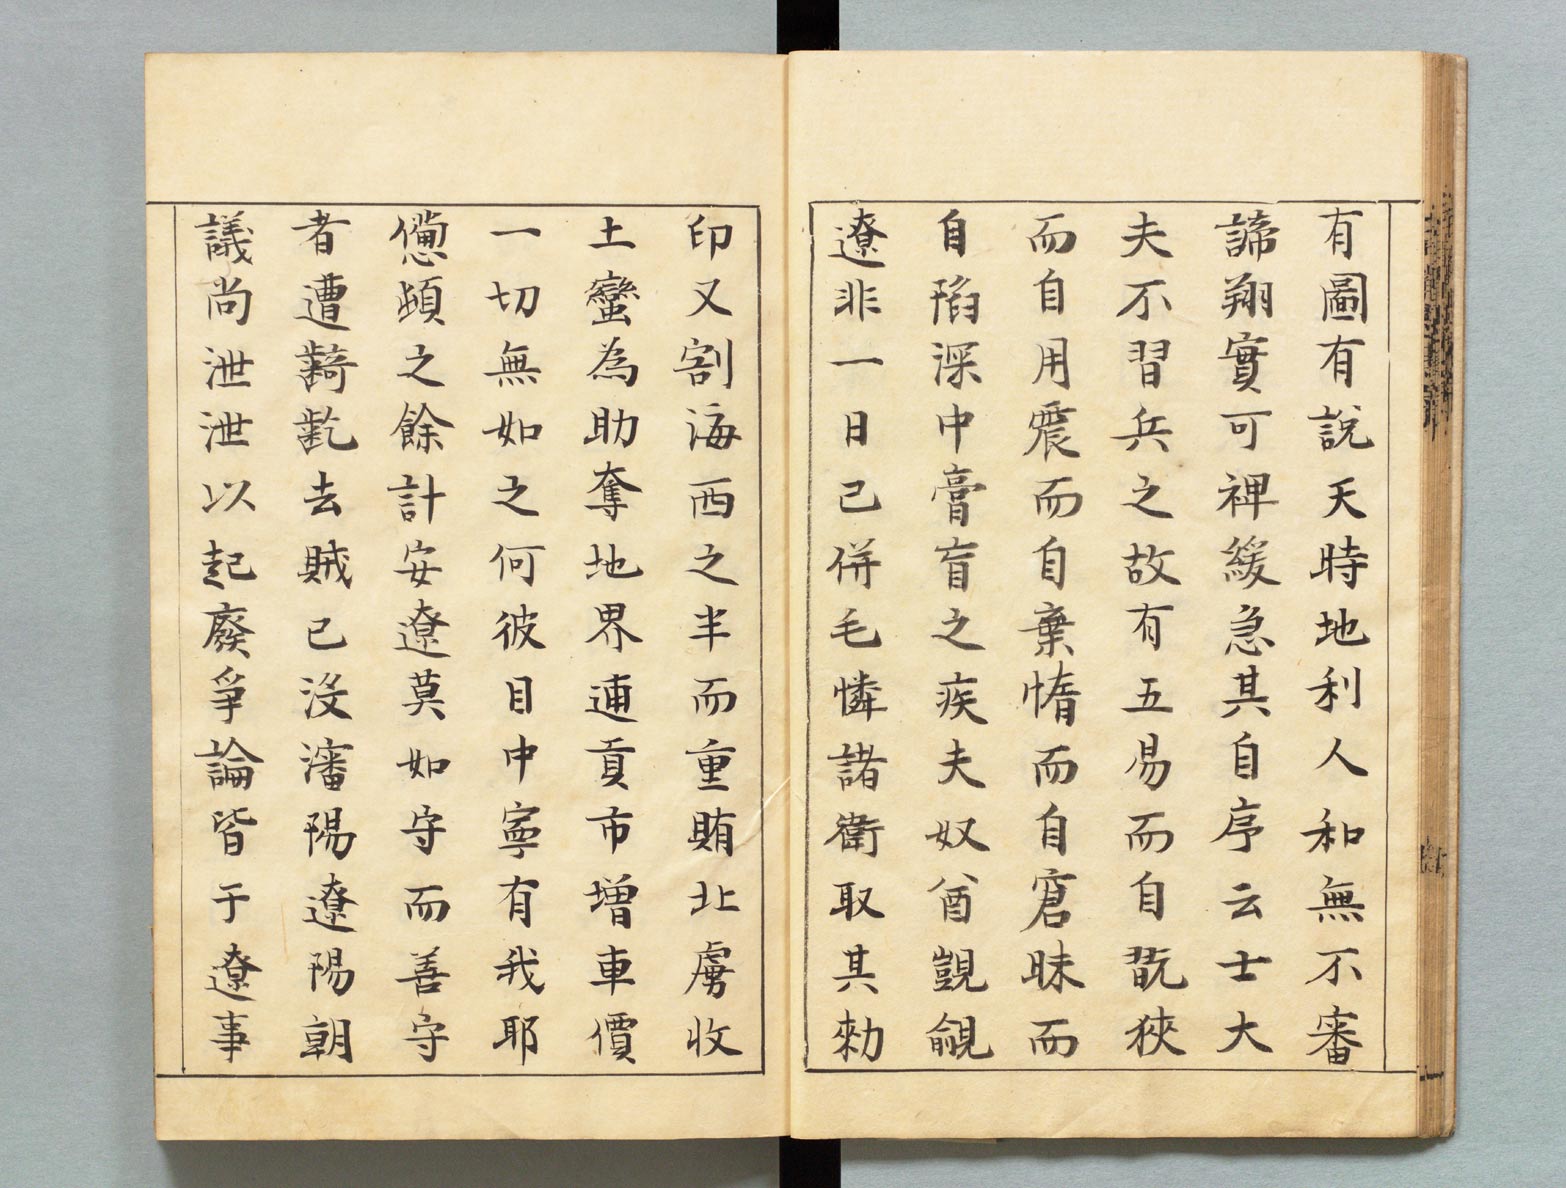 有圖有説天時地利人和無不審
諦翔實可裨緩急其自序云士大
夫不習兵之故有五易而自翫狹
而自用震而自棄惰而自窘昧而
自陷深中膏肓之疾夫奴酋覬覦
遼非一日已併毛憐諸衛取其勑
印又割海西之半而重賄北虜收
土蠻為助奪地界通貢市增車價
一切無如之何彼目中寧有我耶
憊頓之餘計安遼莫如守而善守
者遭齮齕去賊已沒瀋陽遼陽朝
議尚泄泄以起廢爭論皆于遼事